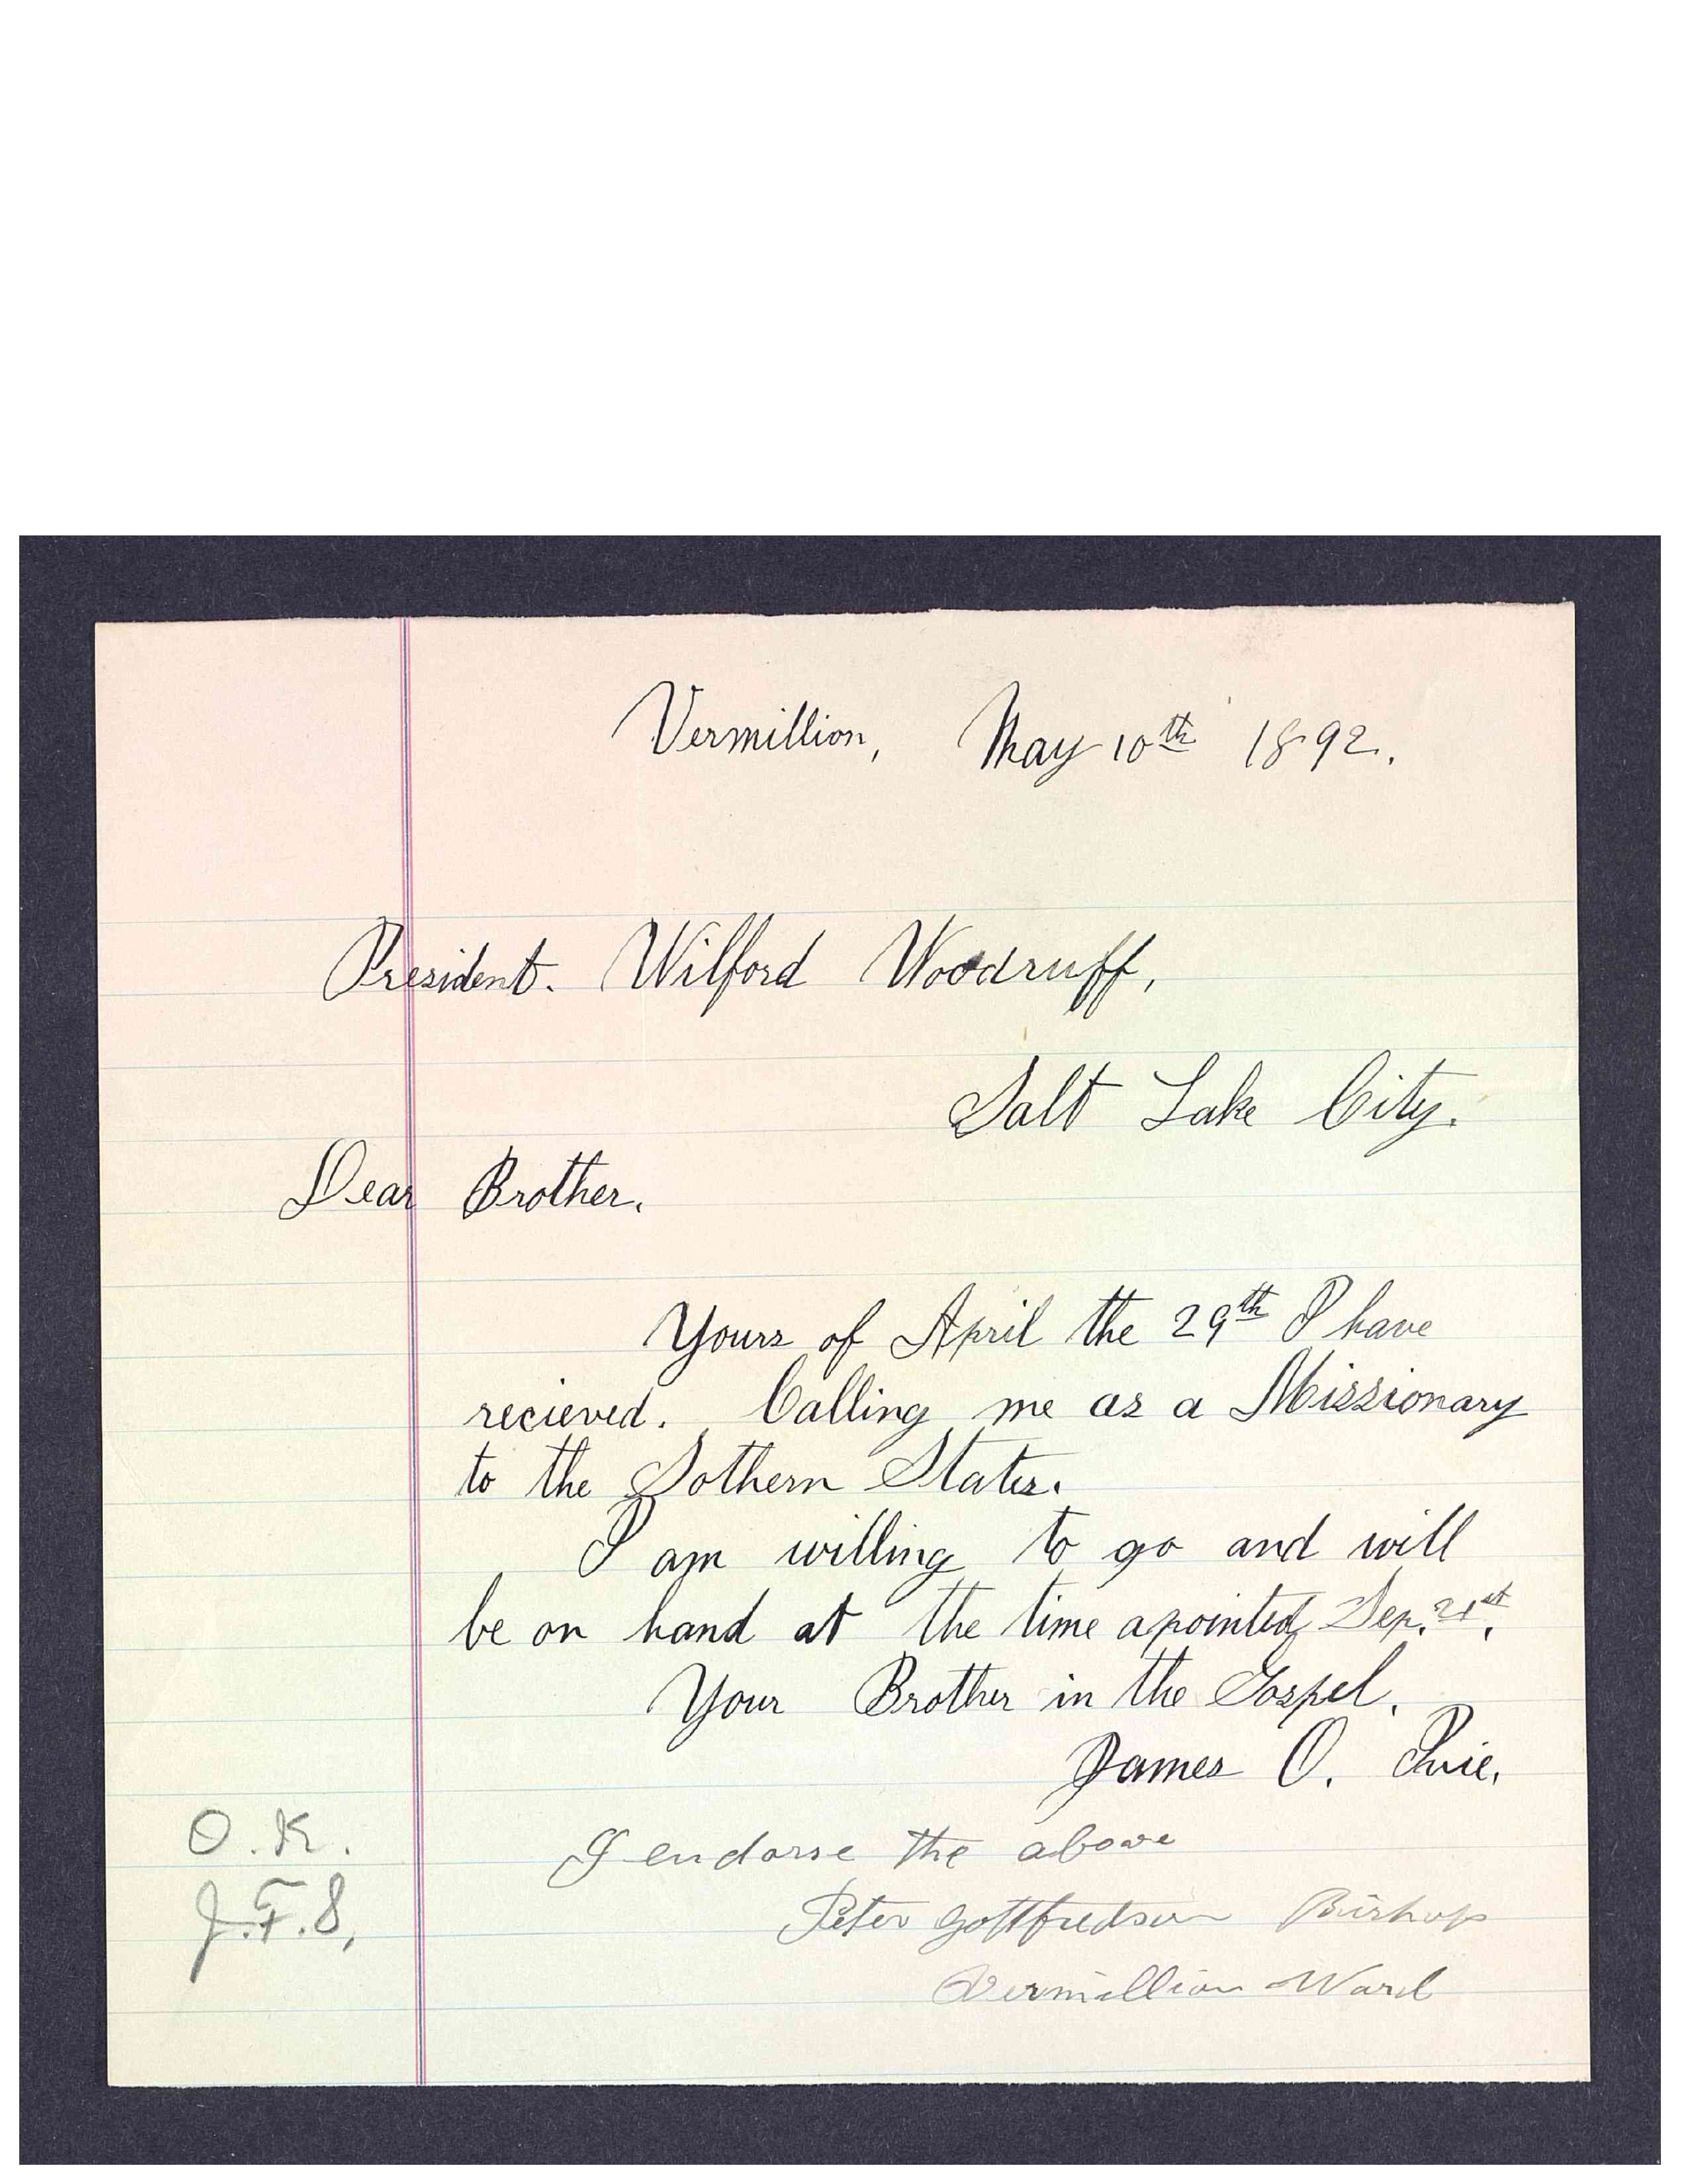 Vermillion, May 10th 1892.
President. Wilford Woodruff,
Salt Lake City.
Dear Brother.
Yours of April the 29th I have
recieved. Calling me as a Missionary
to the Sothern States.
I am willing to go and will
be on hand at the time apointed, Sep. 21st.
Your Brother in the Gospel.
James O. Ivie.
O.K.
J.F.S,
I endorse the above
Peter Gottfredson Bishop
Vermillion Ward